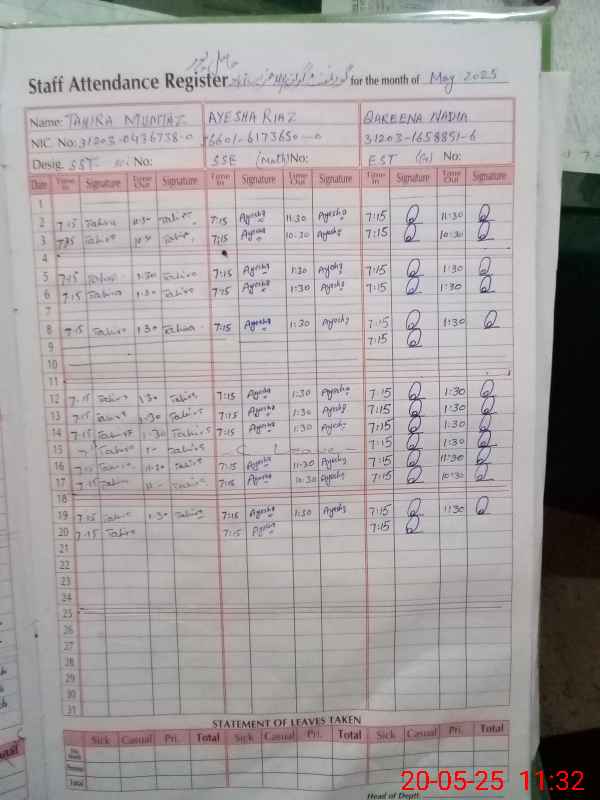 Staff Attendance Register for the month of May 2025
Name: TAHIRA MUMTAZ AYESHA RIAZ QAREENA NADIA
NIC. No: 31203-0436738-0 36601-6173650-0 31203-1658851-6
Desig. SST No: SSE (Math) No: EST No:
Date Time In Signature Time Out Signature Time In Signature Time Out Signature Time In Signature Time Out Signature
1
2 7:15 Tahira 11:30 Tahira 7:15 Ayesha 11:30 Ayesha 7:15 11:30
3 7:15 Tahira Tahira 7:15 Ayesha 10:30 Ayesha 7:15 10:30
4
5 7:15 Tahira 1:30 Tahira 7:15 Ayesha 1:30 Ayesha 7:15 1:30
6 7:15 Tahira 1:30 Tahira 7:15 Ayesha 1:30 Ayesha 7:15 1:30
7
8 7:15 Tahira 1:30 Tahira 7:15 Ayesha 1:30 Ayesha 7:15 1:30
9 7:15
10
11
12 7:15 Tahira 1:30 Tahira 7:15 Ayesha 1:30 Ayesha 7:15 1:30
13 7:15 Tahira 1:30 Tahira 7:15 Ayesha 1:30 Ayesha 7:15 1:30
14 7:15 Tahira 1:30 Tahira 7:15 Ayesha 1:30 Ayesha 7:15 1:30
15 Tahira Tahira 7:15 1:30
16 7:15 Tahira 11:30 Tahira 7:15 Ayesha 11:30 Ayesha 7:15 11:30
17 7:15 Tahira Tahira 7:15 Ayesha 10:30 Ayesha 7:15 10:30
18
19 7:15 Tahira 1:30 Tahira 7:15 Ayesha 1:30 Ayesha 7:15 1:30
20 7:15 Tahira 7:15 Ayesha 7:15
21
22
23
24
25
26
27
28
29
30
31
STATEMENT OF LEAVES TAKEN
Sick Casual Pri. Total Sick Casual Pri. Total Sick Casual Pri. Total
Total
Head of Deptt.
20-05-25 11:32